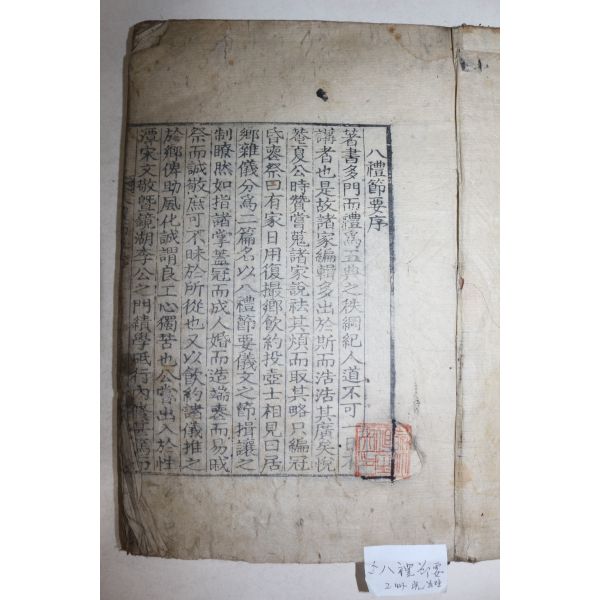 八禮節要序
著書多門而禮爲五典之秩綱紀人道不可一日不
講者也是故諸家編輯多出於斯而浩浩其廣矣悅
菴夏公時贊嘗蒐諸家說袪其煩而取其略只編冠
昏喪祭曰有家日用復撮鄕飮約投壺士相見曰居
鄕雜儀分爲二篇名以八禮節要儀文之節揖讓之
制瞭然如指諸掌盖冠而成人婚而造端喪而易戚
祭而誠敬庶可不昧於所從也又以飮約諸儀推之
於鄕俾助風化誠謂良工心獨苦也公嘗出入於性
潭宋文敬曁鏡湖李公之門績學砥行內
八禮節要